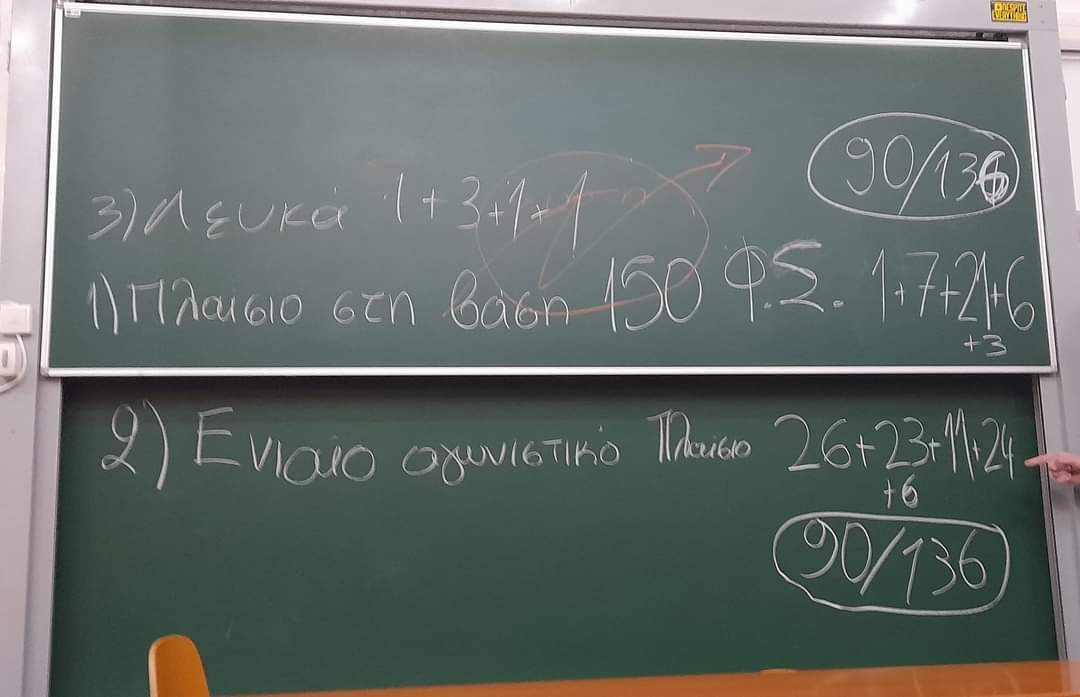 ΠΕΣΠΙΤΕ EVERYTHING
90/136
3) Λευκά 1+3+1+1
1) Πλαίσιο στη βαση 150 Φ.Σ. 1+7+21+6
+3
2) Ενιαίο αγωνιστικό Πλαίσιο 26+23+11+24
+6
90/136